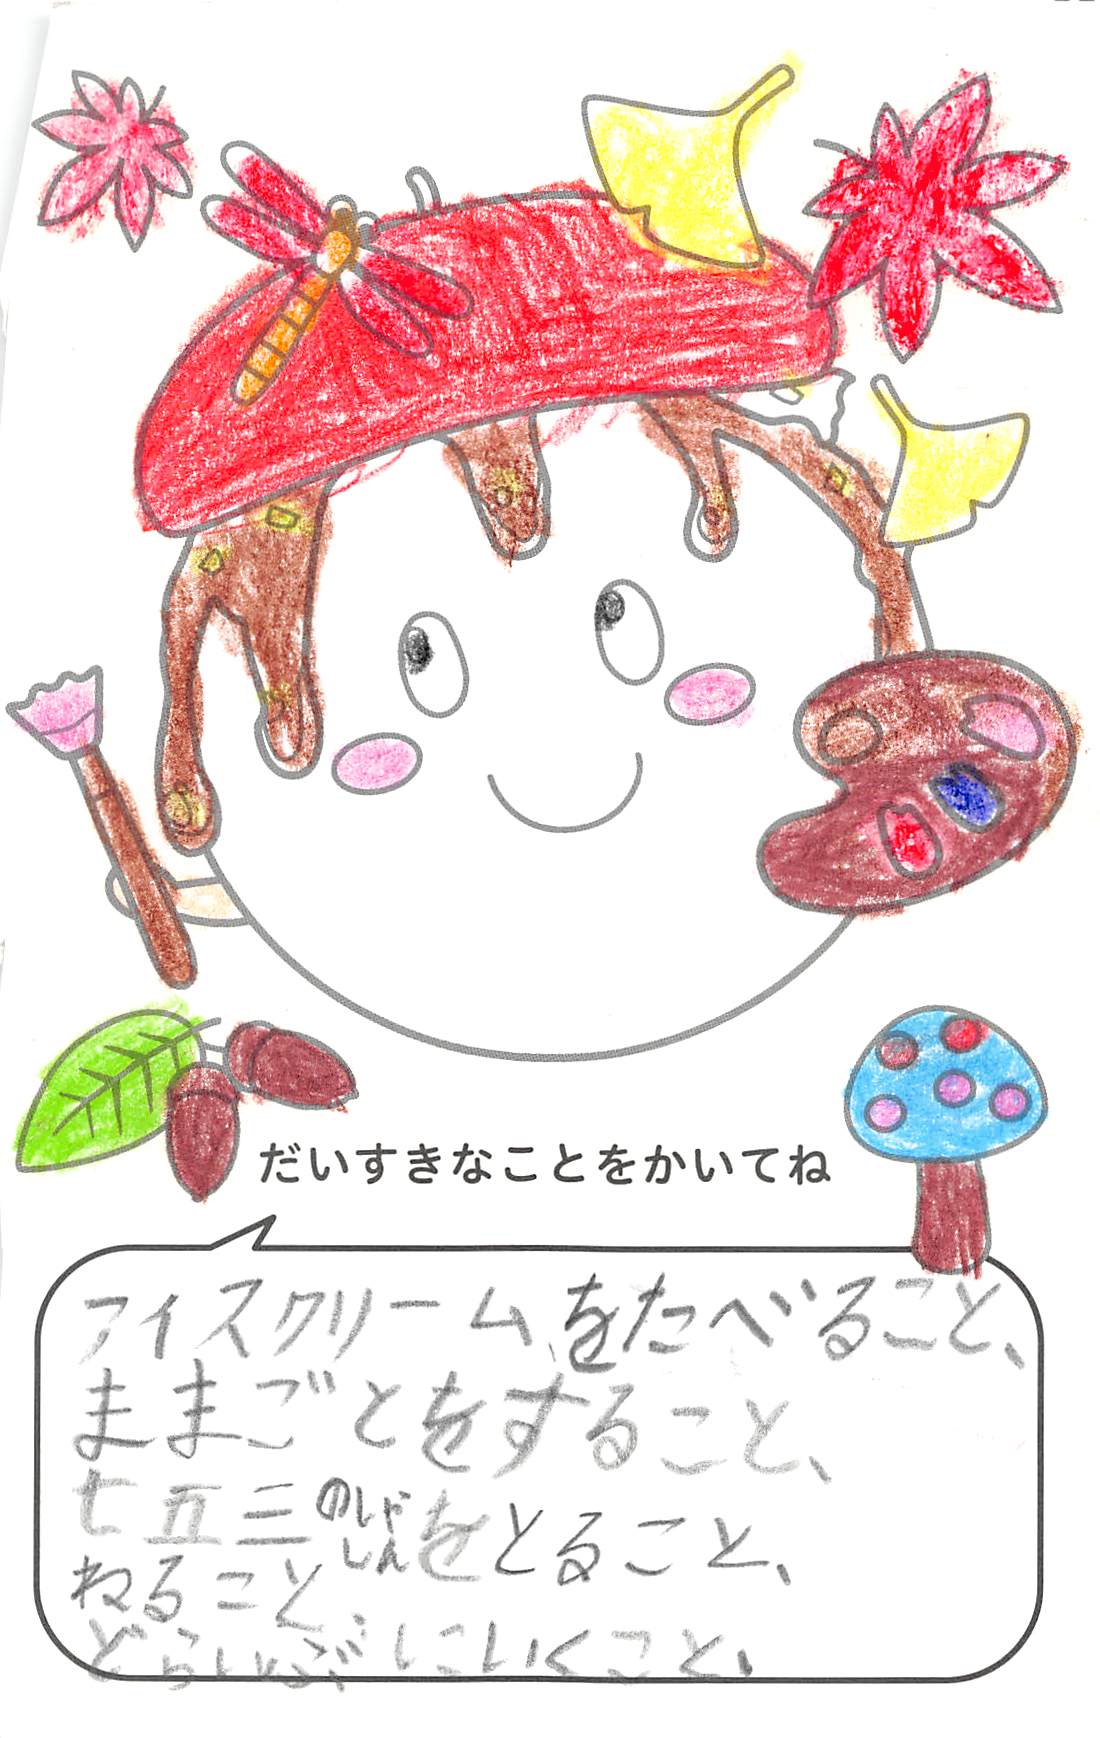 だいすきなことをかいてね
アイスクリームをたべること、
ままごとをすること、
七五三のしゃしんをとること、
ねること、
どらいぶにいくこと、